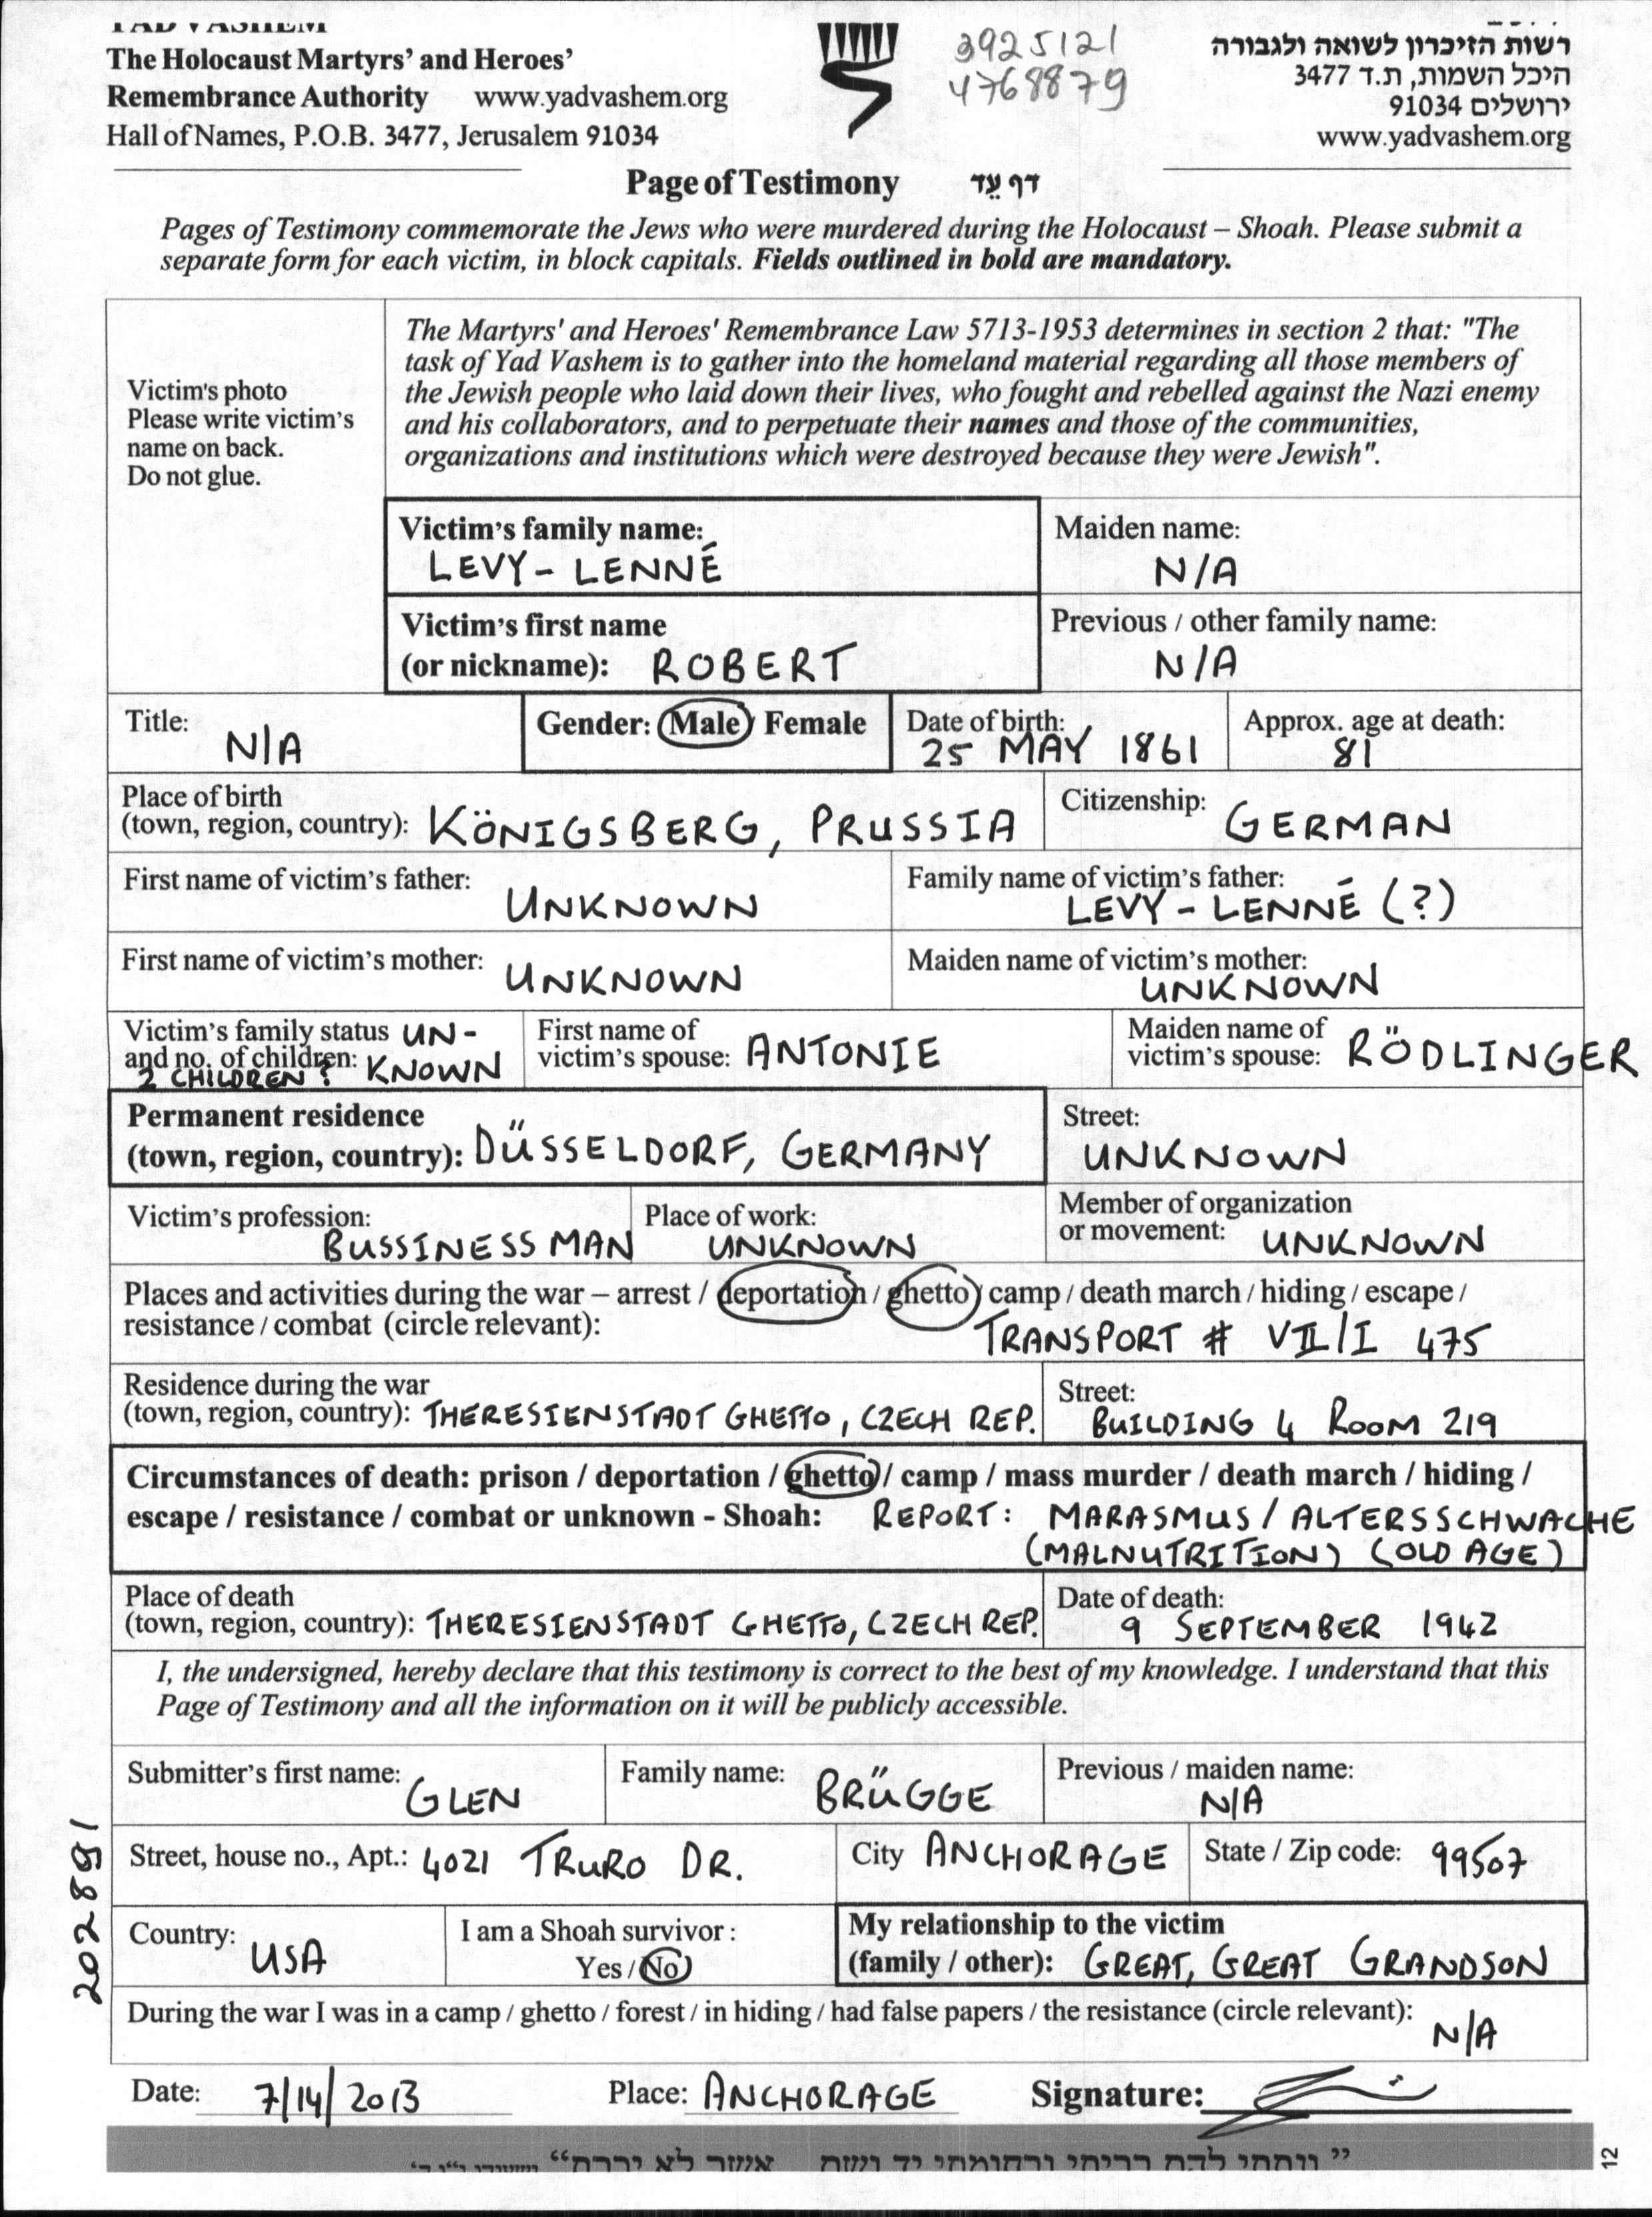 YAD VASHEM
The Holocaust Martyrs' and Heroes'
Remembrance Authority www.yadvashem.org
Hall of Names, P.O.B. 3477, Jerusalem 91034
3925121
4768879
רשות הזיכרון לשואה ולגבורה
היכל השמות, ת.ד 3477
ירושלים 91034
www.yadvashem.org
Page of Testimony דף עֵד
Pages of Testimony commemorate the Jews who were murdered during the Holocaust – Shoah. Please submit a
separate form for each victim, in block capitals. Fields outlined in bold are mandatory.
Victim's photo
Please write victim's
name on back.
Do not glue.
The Martyrs' and Heroes' Remembrance Law 5713-1953 determines in section 2 that: "The
task of Yad Vashem is to gather into the homeland material regarding all those members of
the Jewish people who laid down their lives, who fought and rebelled against the Nazi enemy
and his collaborators, and to perpetuate their names and those of the communities,
organizations and institutions which were destroyed because they were Jewish".
Victim's family name:
LEVY- LENNÉ
Maiden name:
N/A
Victim's first name
(or nickname): ROBERT
Previous / other family name:
N/A
Title:
N/A
Gender: Male / Female
Date of birth:
25 MAY 1861
Approx. age at death:
81
Place of birth
(town, region, country): KÖNIGSBERG, PRUSSIA
Citizenship: GERMAN
First name of victim's father:
UNKNOWN
Family name of victim's father:
LEVY - LENNÉ (?)
First name of victim's mother: UNKNOWN
Maiden name of victim's mother:
UNKNOWN
Victim's family status UN-
and no. of children: KNOWN
2 CHILDREN?
First name of
victim's spouse: ANTONIE
Maiden name of
victim's spouse: RÖDLINGER
Permanent residence
(town, region, country): DÜSSELDORF, GERMANY
Street:
UNKNOWN
Victim's profession:
BUSSINESS MAN
Place of work:
UNKNOWN
Member of organization
or movement: UNKNOWN
Places and activities during the war – arrest / deportation / ghetto / camp / death march / hiding / escape /
resistance / combat (circle relevant): TRANSPORT # VII/I 475
Residence during the war
(town, region, country): THERESIENSTADT GHETTO, CZECH REP.
Street:
BUILDING 4 ROOM 219
Circumstances of death: prison / deportation / ghetto / camp / mass murder / death march / hiding /
escape / resistance / combat or unknown - Shoah: REPORT: MARASMUS / ALTERSSCHWACHE
(MALNUTRITION) (OLD AGE)
Place of death
(town, region, country): THERESIENSTADT GHETTO, CZECH REP.
Date of death:
9 SEPTEMBER 1942
I, the undersigned, hereby declare that this testimony is correct to the best of my knowledge. I understand that this
Page of Testimony and all the information on it will be publicly accessible.
Submitter's first name:
GLEN
Family name: BRÜGGE
Previous / maiden name:
N/A
Street, house no., Apt.: 4021 TRURO DR.
City ANCHORAGE
State / Zip code: 99507
Country: USA
I am a Shoah survivor :
Yes / No
My relationship to the victim
(family / other): GREAT, GREAT GRANDSON
During the war I was in a camp / ghetto / forest / in hiding / had false papers / the resistance (circle relevant):
N/A
Date: 7/14/2013
Place: ANCHORAGE
Signature:
202891
12